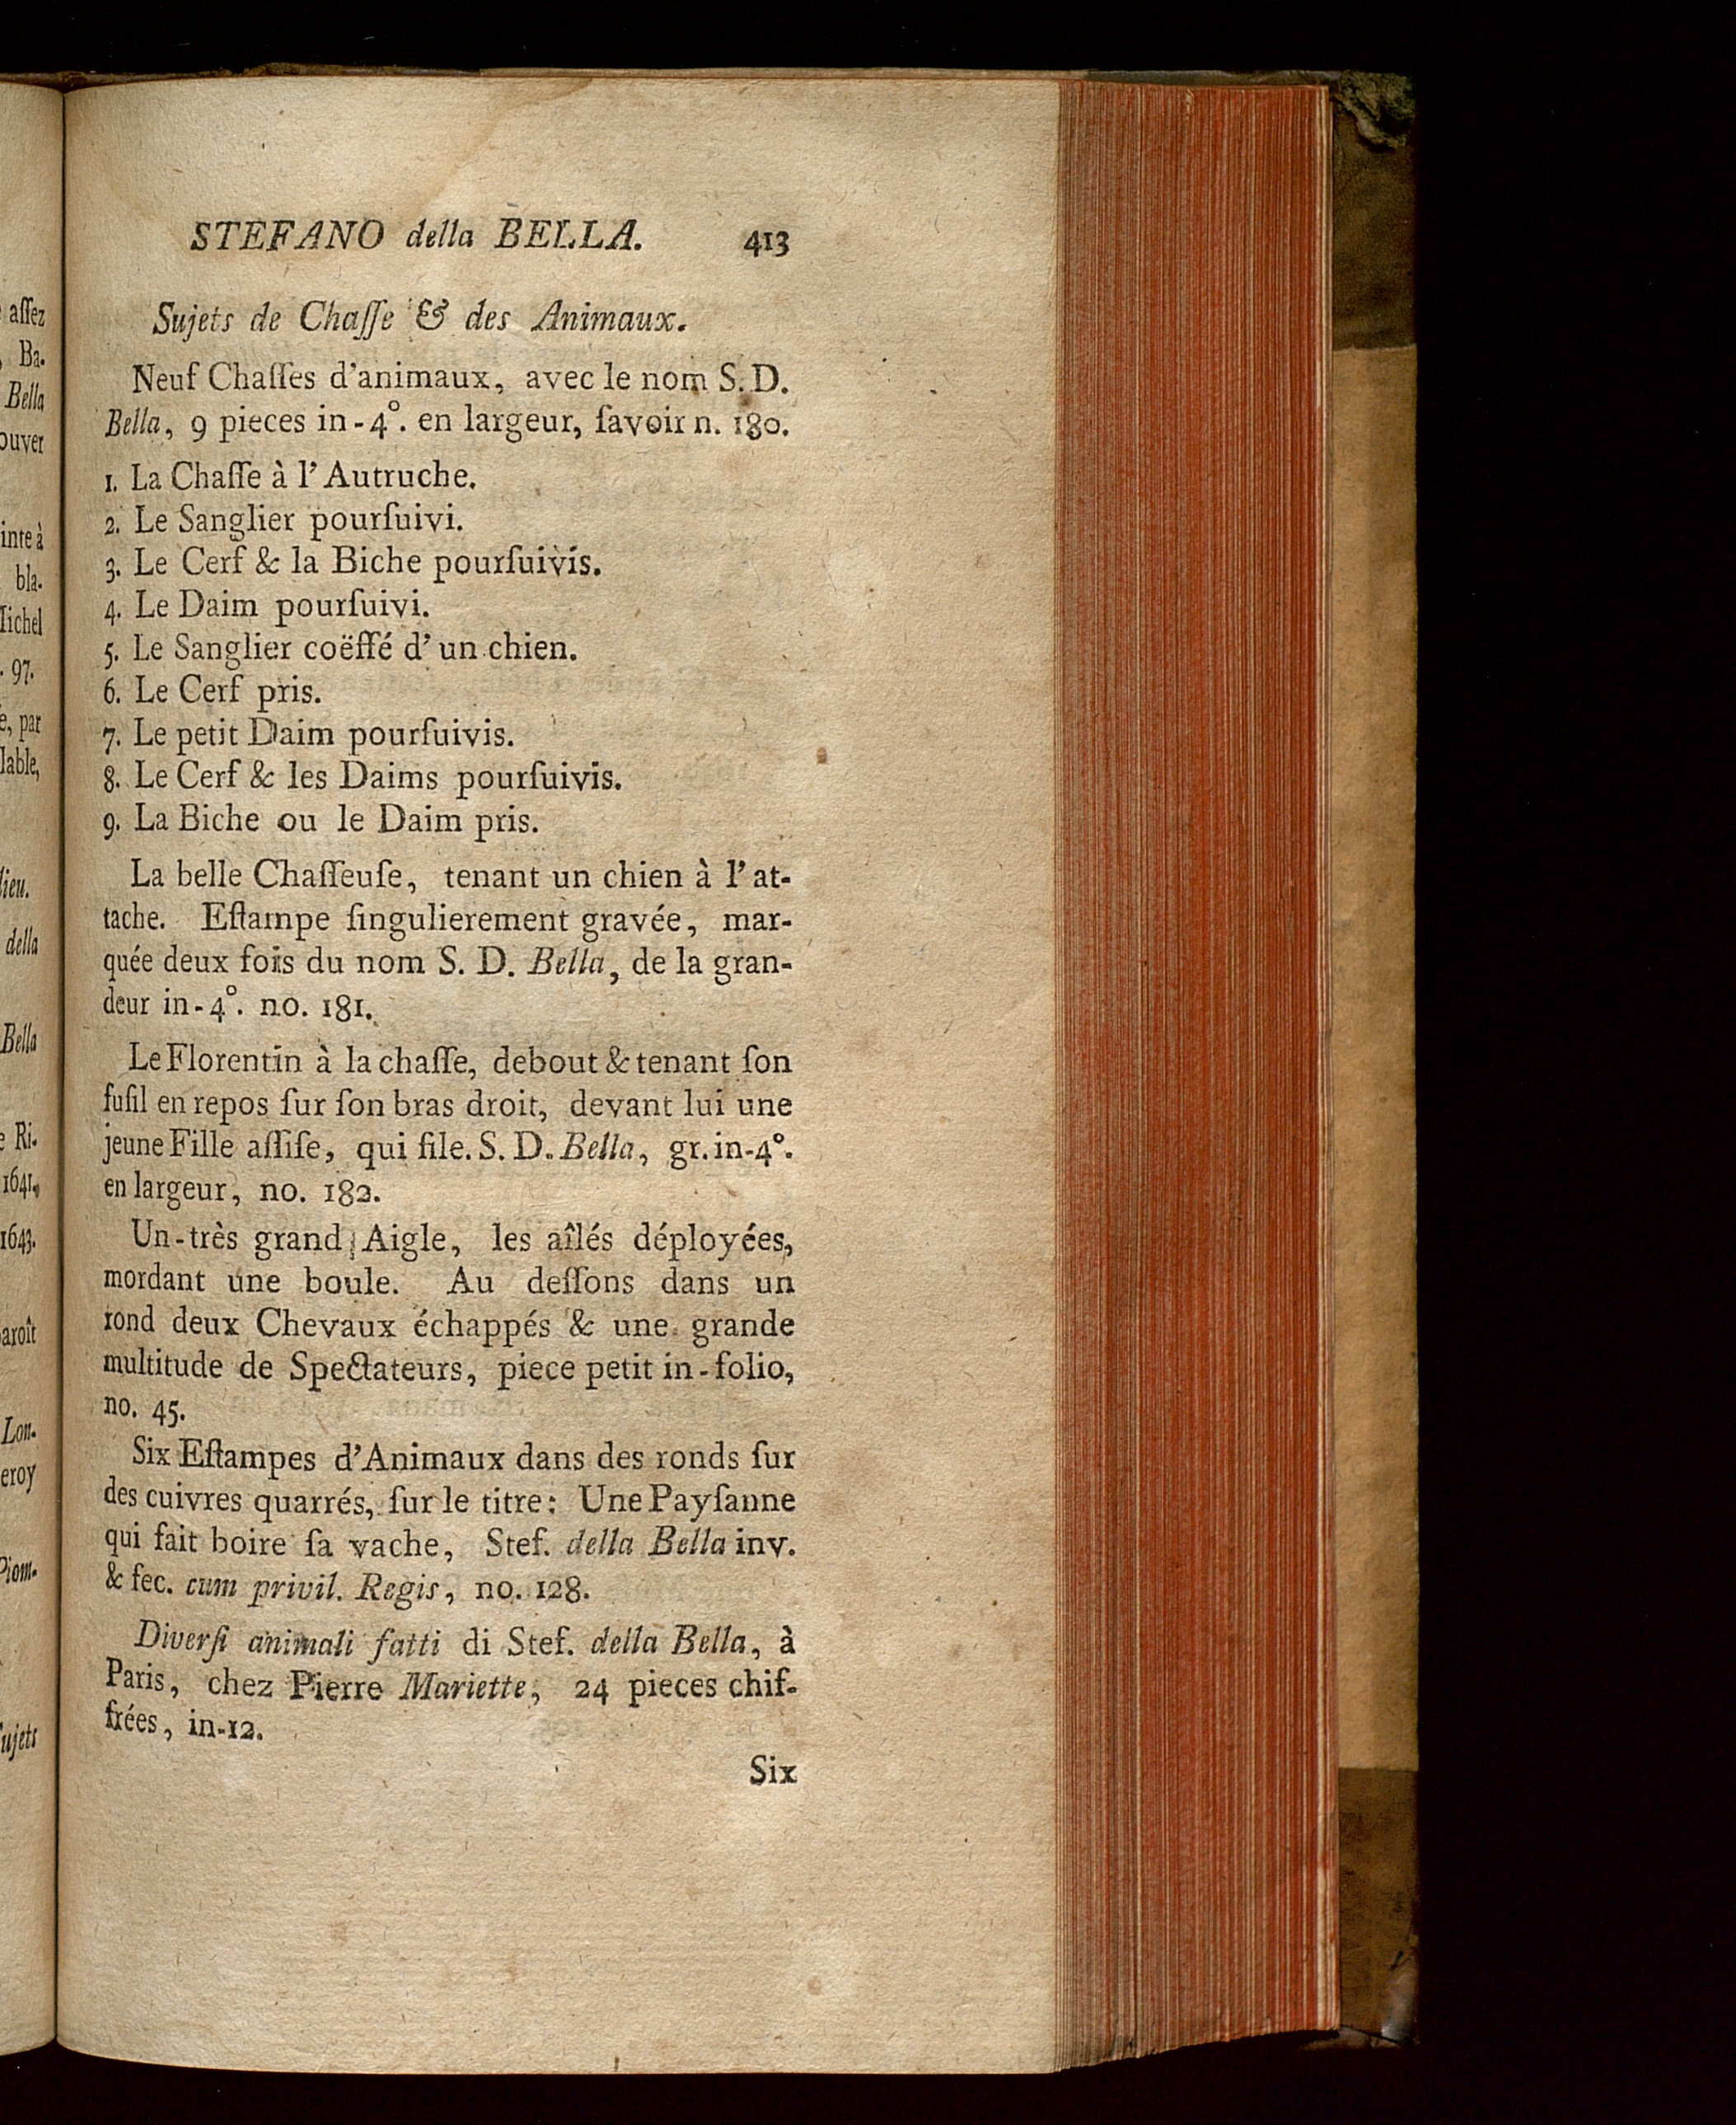 STEFANO della BELLA. 413
Sujets de Chaſſe & des Animaux.
Neuf Chaſſes d'animaux, avec le nom S. D.
Bella, 9 pieces in-4°. en largeur, ſavoir n. 180.
1. La Chaſſe à l'Autruche.
2. Le Sanglier pourſuivi.
3. Le Cerf & la Biche pourſuivis.
4. Le Daim pourſuivi.
5. Le Sanglier coëffé d'un chien.
6. Le Cerf pris.
7. Le petit Daim pourſuivis.
8. Le Cerf & les Daims pourſuivis.
9. La Biche ou le Daim pris.
La belle Chaſſeuſe, tenant un chien à l'at-
tache. Eſtampe ſingulierement gravée, mar-
quée deux fois du nom S. D. Bella, de la gran-
deur in-4°. no. 181.
Le Florentin à la chaſſe, debout & tenant ſon
fuſil en repos ſur ſon bras droit, devant lui une
jeune Fille aſſiſe, qui file. S. D. Bella, gr. in-4°.
en largeur, no. 182.
Un-très grand Aigle, les aîlés déployées,
mordant une boule. Au deſſons dans un
rond deux Chevaux échappés & une grande
multitude de Spectateurs, piece petit in-folio,
no. 45.
Six Eſtampes d'Animaux dans des ronds ſur
des cuivres quarrés, ſur le titre: Une Payſanne
qui fait boire ſa vache, Stef. della Bella inv.
& fec. cum privil. Regis, no. 128.
Diverſi animali fatti di Stef. della Bella, à
Paris, chez Pierre Mariette, 24 pieces chif-
frées, in-12.
Six
aſſez
Ba-
Bella
ouver
inte à
bla-
97.
e, par
lable,
lieu.
della
Bella
e Ri-
1641.
1643.
aroît
Lon-
eroy
Piom-
ujets